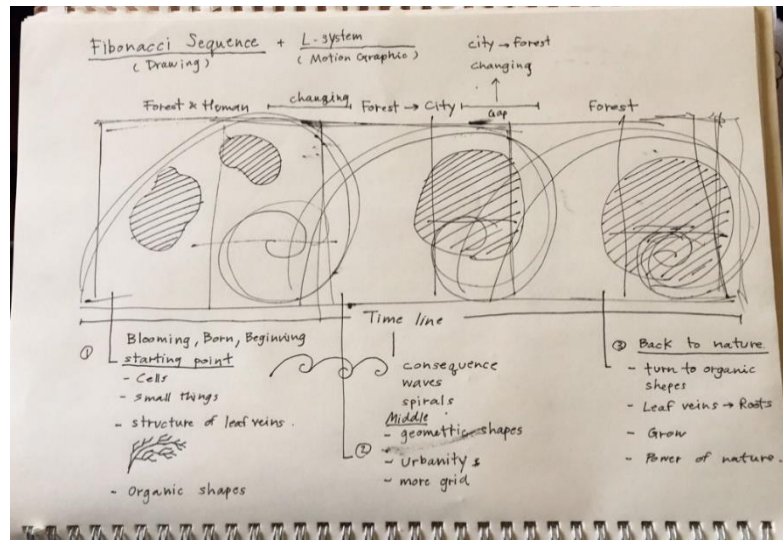 Fibonacci Sequence + L-system
(Drawing) (Motion Graphic)
city → forest
changing
Forest & Human
changing
Forest → City
Gap
Forest
Time line
①
Blooming, Born, Beginning
starting point
- Cells
- small things
- structure of leaf veins.
- Organic shapes
consequence
waves
spirals
②
Middle
- geometric shapes
- Urbanity s
- more grid
③ Back to nature.
- turn to organic
shepes
- Leaf veins → Roots
- Grow
- Power of nature.